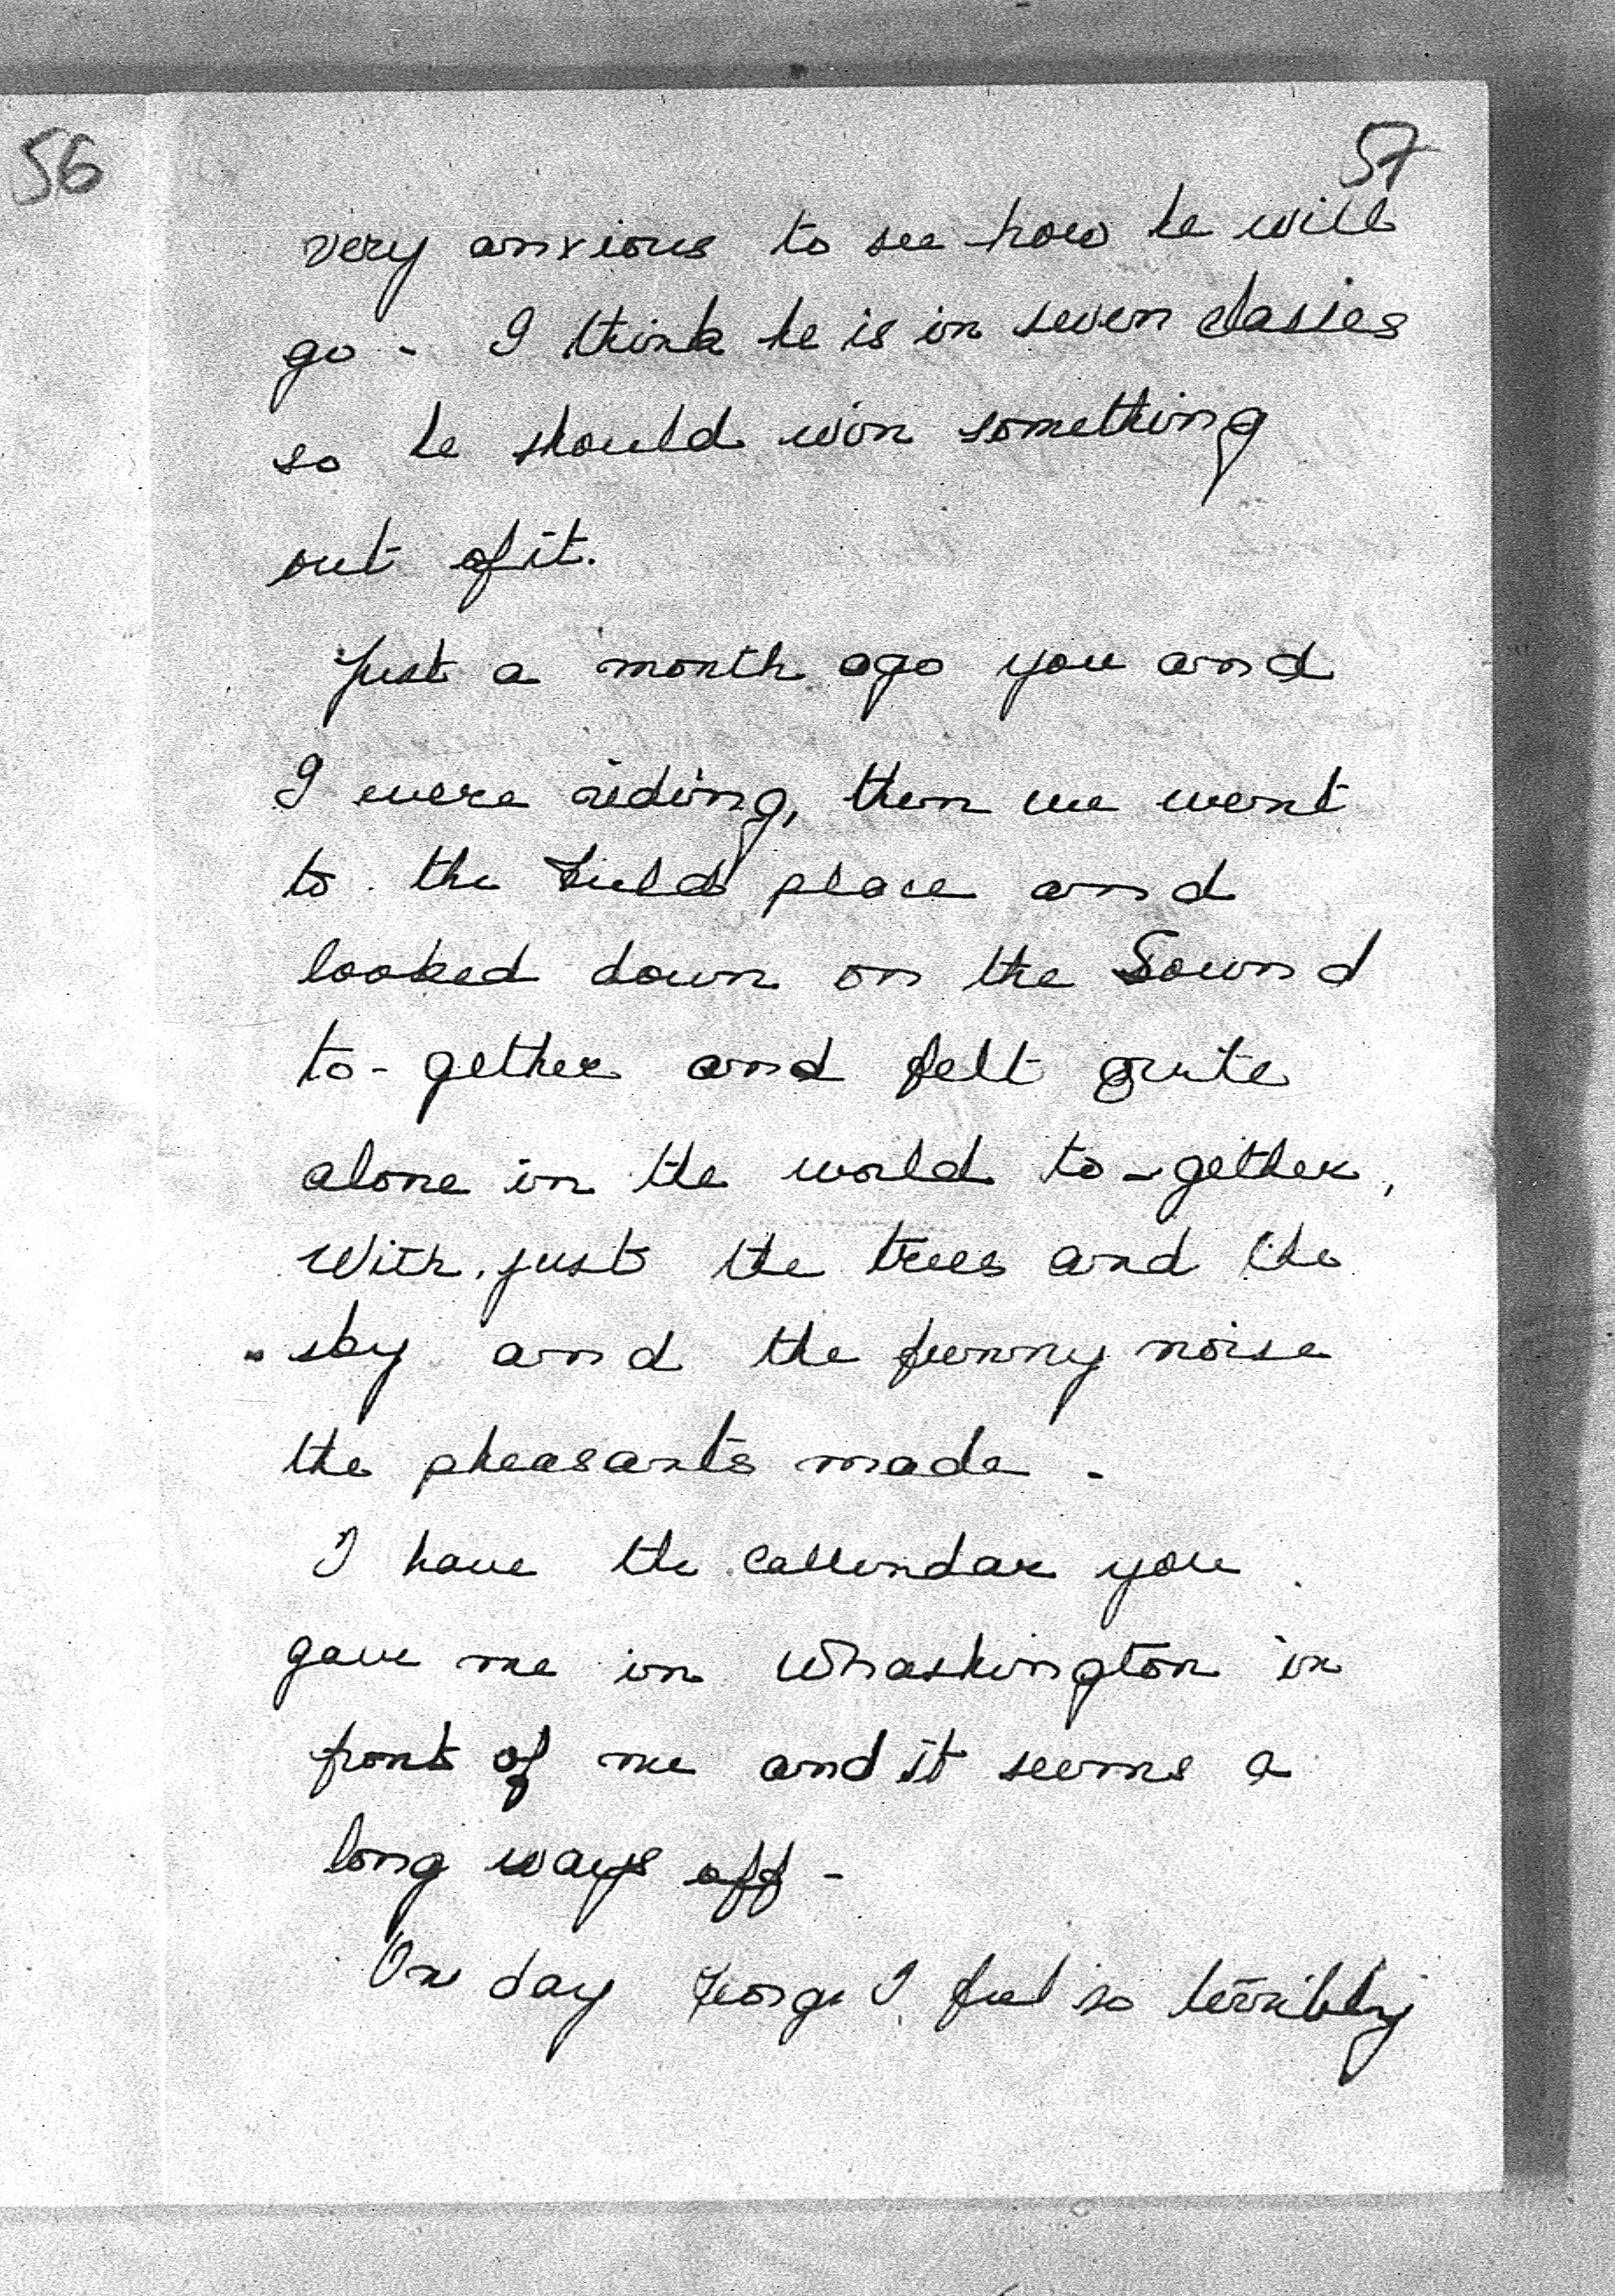 56
57
very anxious to see how he will
go - I think he is in seven classes
so he should win something
out of it.
Just a month ago you and
I were riding, then we went
to the Field place and
looked down on the Sound
to-gether and felt quite
alone in the world to-gether,
With just the trees and the
sky and the funny noise
the pheasants made.
I have the callendar you
gave me in Whashington in
front of me and it seems a
long ways off -
On day George I feel so terribly